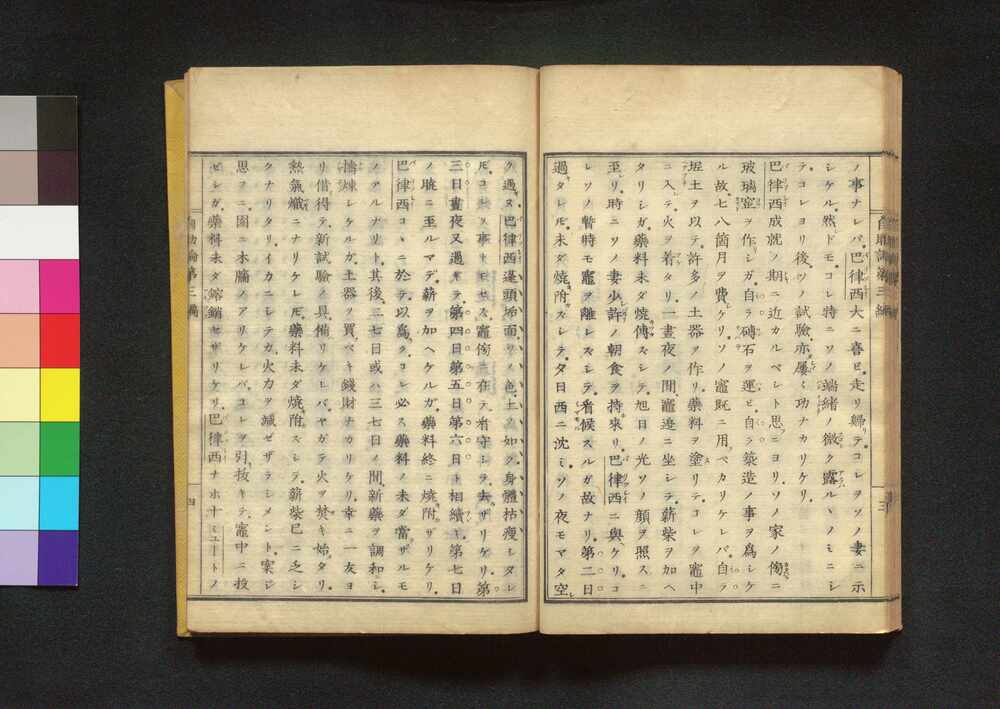 ノ事ナレバ巴律西大ニ喜ビ走リ歸テコレヲソノ妻ニ示
シケル然ドモコレ特ニソノ端緒ノ微ク露ルヽノミニシ
テコレヨリ後ソノ試驗亦屢〻功ナカリケリ
巴律西成就ノ期ニ近カルベシト思ニヨリソノ家ノ傍ニ
玻璃窰ヲ作シガ自ラ磚石ヲ運ビ自ラ築造ノ事ヲ爲シケ
ル故七八箇月ヲ費ケリソノ竈既ニ用ベカリケレバ自ラ
埿土ヲ以テ許多ノ土器ヲ作リ藥料ヲ塗テコレヲ竈中
ニ入レテ火ヲ着タリ一晝夜ノ間竈邊ニ坐シテ薪柴ヲ加ヘ
タリシガ藥料未ダ燒傅ズシテ旭日ノ光ソノ顔ヲ照スニ
至リ時ニソノ妻少許ノ朝食ヲ持來リ巴律西ニ與ケリコ
レソノ暫時モ竈ヲ離レズシテ看候スルガ故ナリ第二日
過タレドモ未ダ燒附ズシテ夕日西ニ沈ミソノ夜モマタ空
自助論第三編
三
ク過ヌ巴律西蓬頭垢面ソノ色土ノ如ク身體枯瘦シタレ
ドモコレヲ事トモセズ竈傍ニ在テ看守シテ去ザリケリ第
三日晝夜又過キテ第四日第五日第六日ト相續キ第七日
ノ曉ニ至ルマデ薪ヲ加ヘケルガ藥料終ニ燒附ザリケリ
巴律西コヽニ於テ以爲クコレ必ズ藥料ノ未ダ當ザルモ
ノアルナリト其後二七日或ハ三七日ノ間新藥ヲ調和シ
擣煉シケルガ土器ヲ買ベキ錢財ナカリケリ幸ニ一友ヨ
リ借得テ新試驗ノ具備リケレバヤガテ火ヲ焚キ始タリ
熱氣熾ニナリケレドモ藥料未ダ燒附ズシテ薪柴已ニ乏シ
クナリタリイカニシテカ火力ヲ減ゼザラシメント案ジ
思フニ園ニ木牆ノアリケレバコレヲ引抜キテ竈中ニ投
ゼシガ藥料未ダ鎔銷セザリケリ巴律西ナホ十ミニュートノ
自助論第三編
四